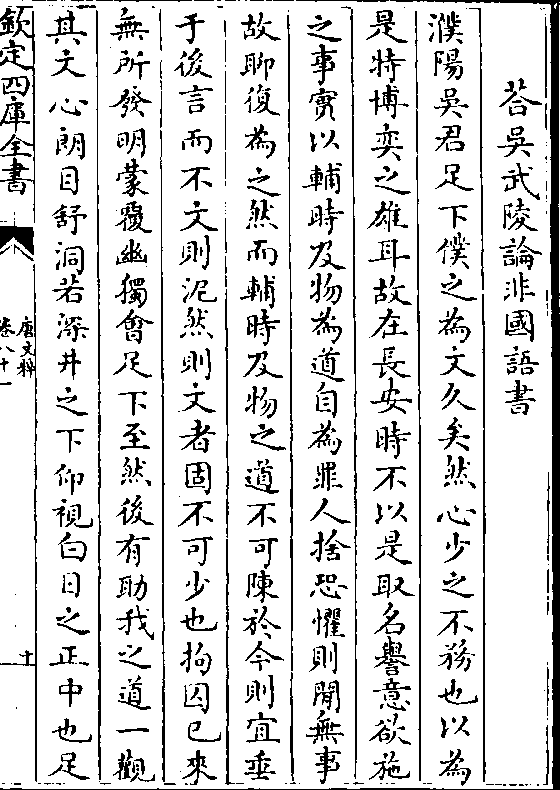 荅吳武陵論非國語書
濮陽吳君足下僕之為文久矣然心少之不務也以為
是特博奕之雄耳故在長安時不以是取名譽意欲施
之事實以輔時及物為道自為罪人捨恐懼則閒無事
故聊復為之然而輔時及物之道不可陳於今則宜垂
于後言而不文則泥然則文者固不可少也拘囚已來
無所發明蒙覆幽獨會足下至然後有助我之道一觀
其文心朗目舒洞若深井之下仰視白日之正中也足
欽定四庫全書
唐文粹
卷八十一
十